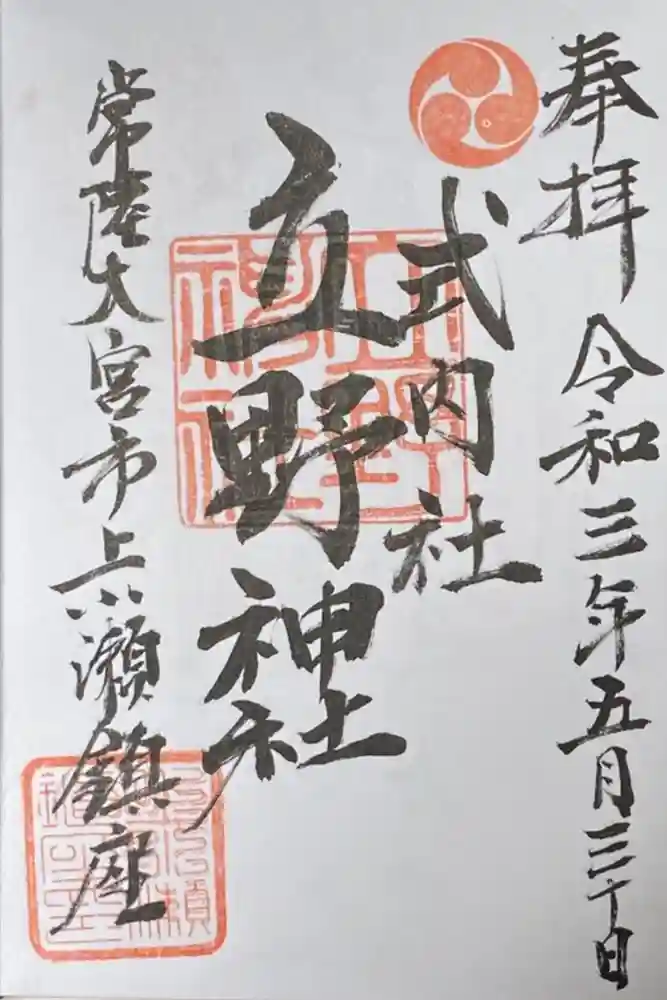 奉拝 令和三年五月三十日
式内社
立野神社
常陸大宮市上小瀬鎮座
立野神社